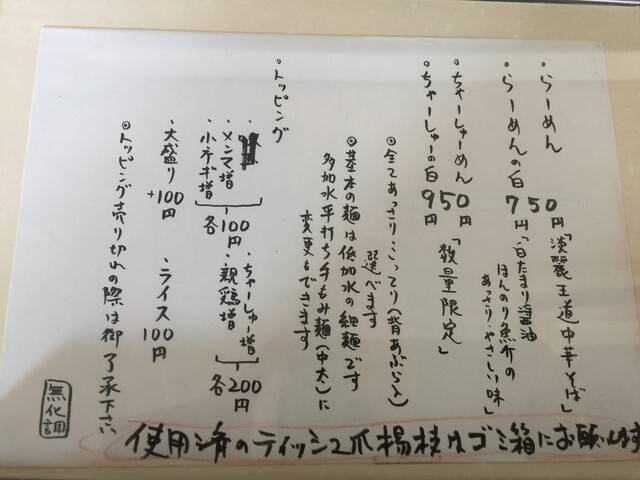 ・らーめん
・らーめんの白
750円
「淡麗王道中華そば」
「白たまり醤油
ほんのり魚介の
あっさり・やさしい味」
・ちゃーしゅーめん
・ちゃーしゅーの白
950円
「数量限定」
◎全てあっさり・こってり(背あぶら入)
選べます
◎基本の麺は低加水の細麺です
多加水平打ち手もみ麺(中太)に
変更もできます
・トッピング
・メンマ増
・小ネギ増
各100円
・ちゃーしゅー増
・親鶏増
各200円
・大盛り+100円
・ライス100円
◎トッピング売り切れの際は御了承下さい
無化調
使用済のティッシュ爪楊枝はゴミ箱にお願いします